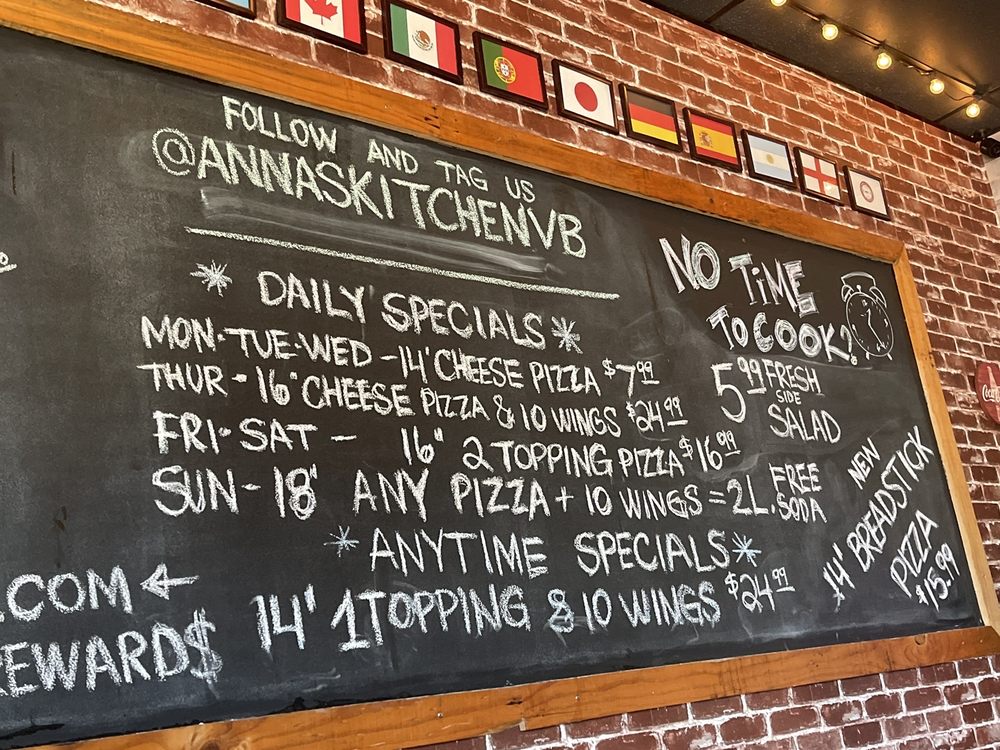 FOLLOW AND TAG US
@ANNASKITCHENVB
DAILY SPECIALS
MON·TUE·WED - 14" CHEESE PIZZA $7.99
THUR - 16" CHEESE PIZZA & 10 WINGS $24.99
FRI·SAT - 16" 2 TOPPING PIZZA $16.99
SUN - 18" ANY PIZZA + 10 WINGS = 2L. FREE SODA
ANYTIME SPECIALS
14" 1 TOPPING & 10 WINGS $24.99
.COM ←
EWARD$
NO TIME
TO COOK?
5.99 FRESH
SIDE
SALAD
NEW
14" BREADSTICK
PIZZA
$15.99